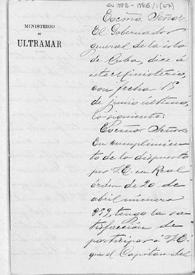 MINISTERIO
DE
ULTRAMAR
Excmo. Señor
El Gobernador
general de la isla
de Cuba, dice á
este Ministerio,
con fecha 15
de Junio último,
lo siguiente:
Excmo Señor
En cumplimien
to de lo dispuesto
por V.E. en Real
órden de 20 de
abril número
959, tengo la sa
tisfaccion de
participar á V.E.
que el Capitan de